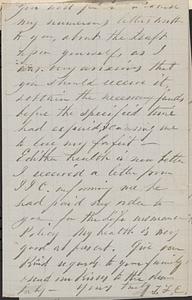 You will
my numerous letters
to you, about the Draft
upon yourself, as I
was very anxious that
you should receive it,
obtain the necessary funds
before the specified time
had expired causing me
to lose my forfeit –
Edith's health is now better
I received a letter from
informing me he
had paid my order to
you for the Life Insurance
Policy My health is very
good at present. Give our
kind regards to your family
kisses to the dear
Yours truly